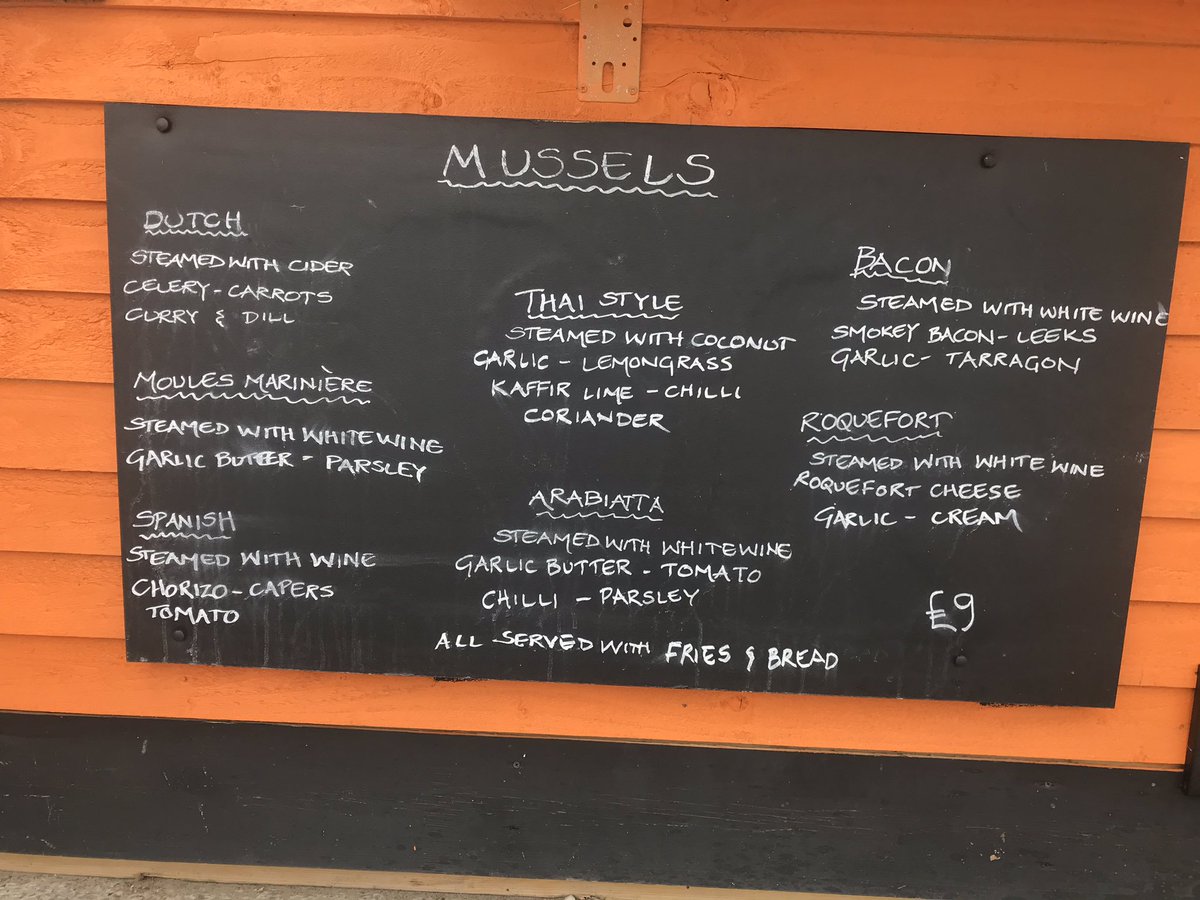 MUSSELS
DUTCH
STEAMED WITH CIDER
CELERY - CARROTS
CURRY & DILL
MOULES MARINIÈRE
STEAMED WITH WHITE WINE
GARLIC BUTTER - PARSLEY
SPANISH
STEAMED WITH WINE
CHORIZO - CAPERS
TOMATO
THAI STYLE
STEAMED WITH COCONUT
GARLIC - LEMONGRASS
KAFFIR LIME - CHILLI
CORIANDER
ARABIATTA
STEAMED WITH WHITE WINE
GARLIC BUTTER - TOMATO
CHILLI - PARSLEY
BACON
STEAMED WITH WHITE WINE
SMOKEY BACON - LEEKS
GARLIC - TARRAGON
ROQUEFORT
STEAMED WITH WHITE WINE
ROQUEFORT CHEESE
GARLIC - CREAM
£9
ALL SERVED WITH FRIES & BREAD